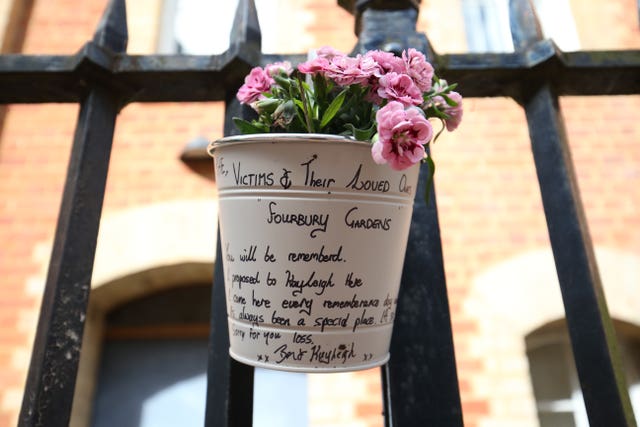 Victims & Their Loved
Fourbury Gardens
You will be rememberd.
I proposed to Kayleigh Here
come here every rememberance day
always been a special place.
sorry for you loss.
xx Ben & Kayleigh xx